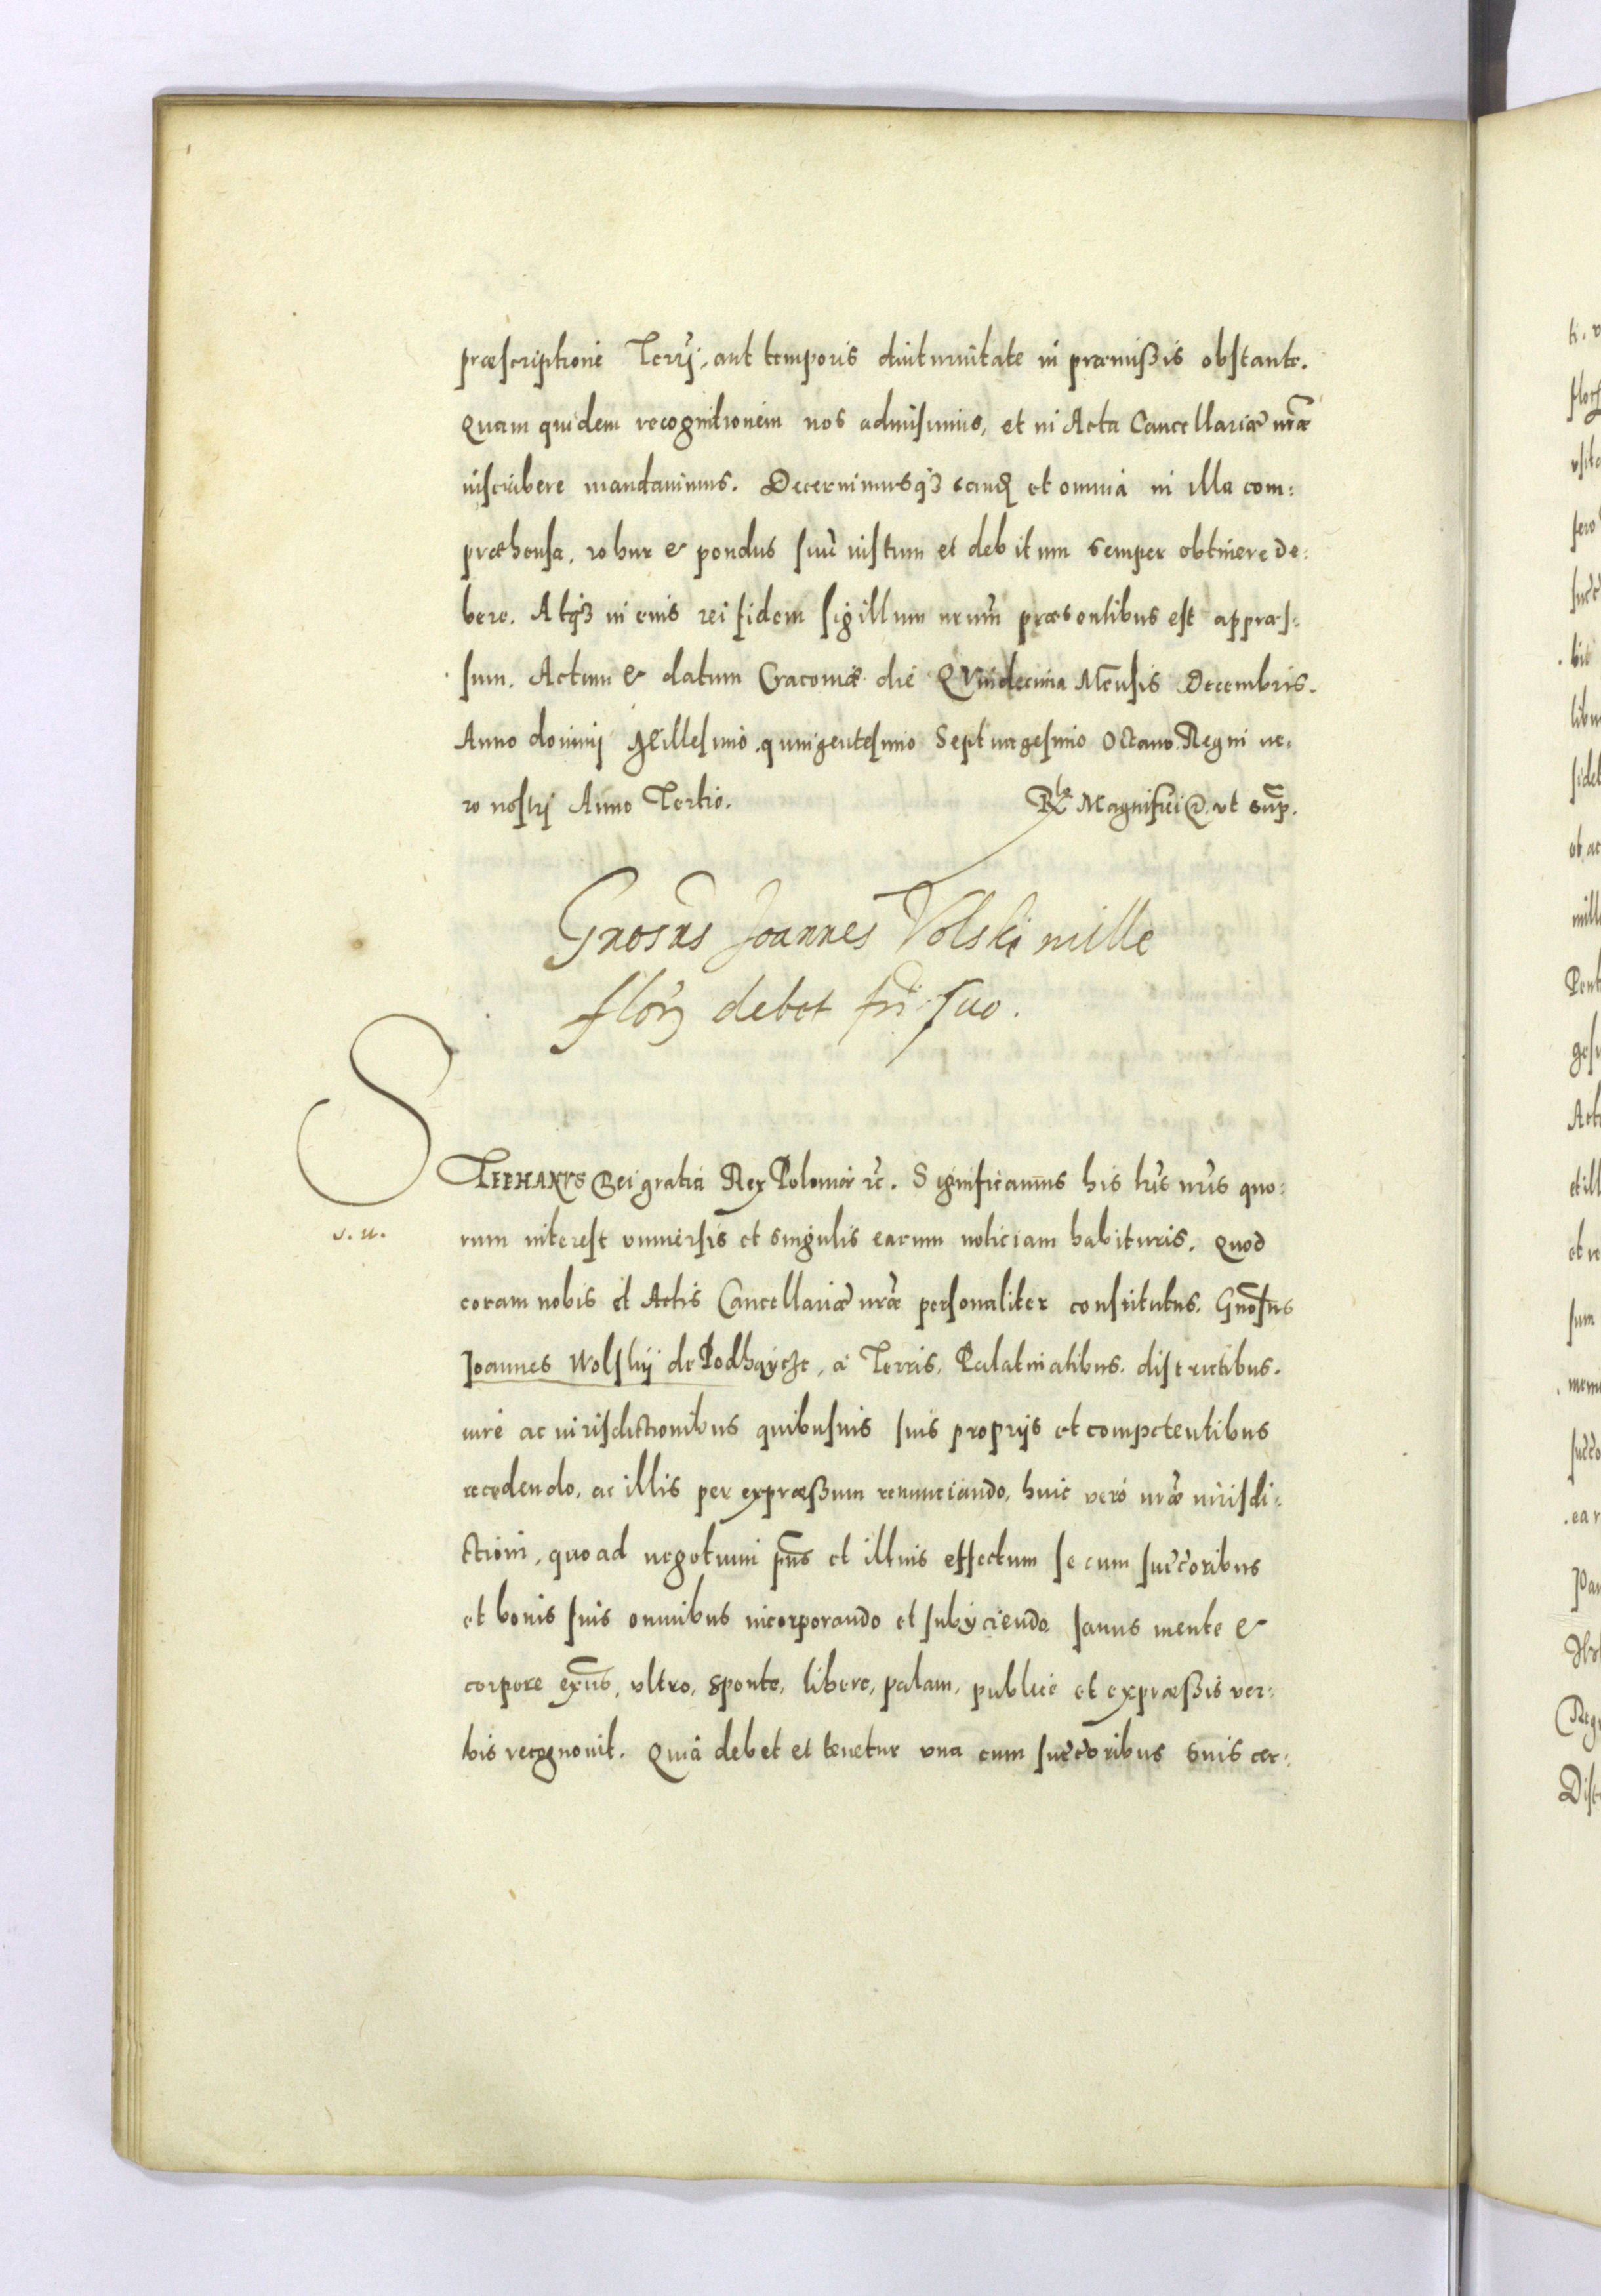 præscriptione Terrj, aut temporis diuturnitate in præmißis obstante.
Quam quidem recognitionem nos admisimus, et in Acta Cancellariæ nr̃æ
inscribere mandauimus. Decernimusqȝ eandẽ et omnia in illa com:
præhensa, robur & pondus suũ iustum et debitum semper obtinere de:
bere. Atqȝ in cuius rei fidem sigillum nrum̃ præsentibus est appræs:
sum. Actum & datum Cracouiæ die QVindecima Mẽnsis Decembris.
Anno dominj Millesimo, quingentesimo Septuagesimo Octauo Regni ue:
ro nostrj Anno Tertio. Rlõ Magnifici &. vt sup̃.
Gnosũs Joannes Volski mille
flõr debet frĩ suo.
STEPHANVS Dei gratia Rex Poloniæ &c̃. Significamus his lrĩs nrĩs quo:
s. u.
rum interest vniuersis et singulis earum noticiam habituris. Quod
coram nobis et Actis Cancellariæ nr̃æ personaliter constitutus. Gnosũs
Joannes Wolskij de Podhaycze, a Terris, Palatinatibus, districtibus,
iure ac iurisdictionibus quibusuis suis proprijs et competentibus
recedendo, ac illis per expræßum renunciando, huic vero nr̃æ iurisdi:
ctioni, quoad negotium pñs et illius effectum se cum succ̃oribus
et bonis suis omnibus incorporando et subijciendo. sanus mente &
corpore exñs, vltro, sponte, libere, palam, publice et expræßis ver:
bis recognouit. Quia debet et tenetur vna cum succ̃oribus suis cer: